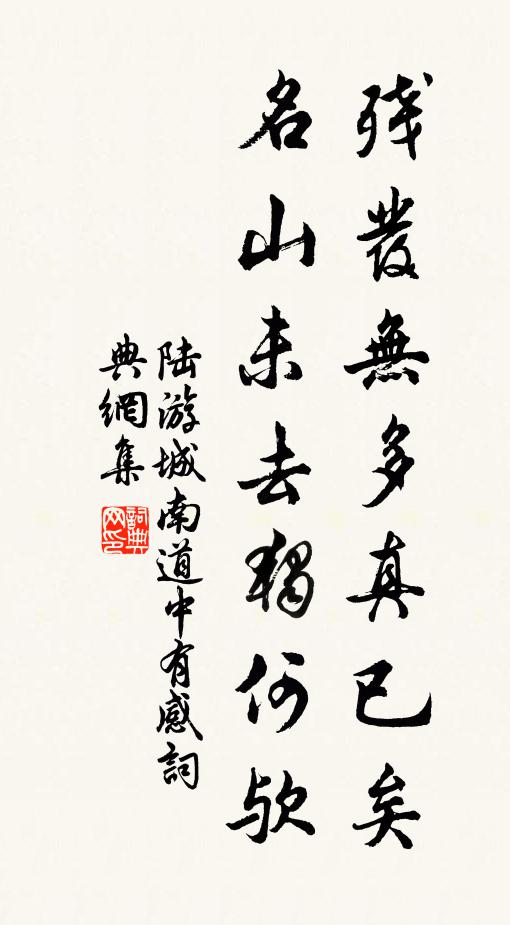 残發無多真已矣
名山未去獨何欤
陆游城南道中有感詞
典網集
詞典网印